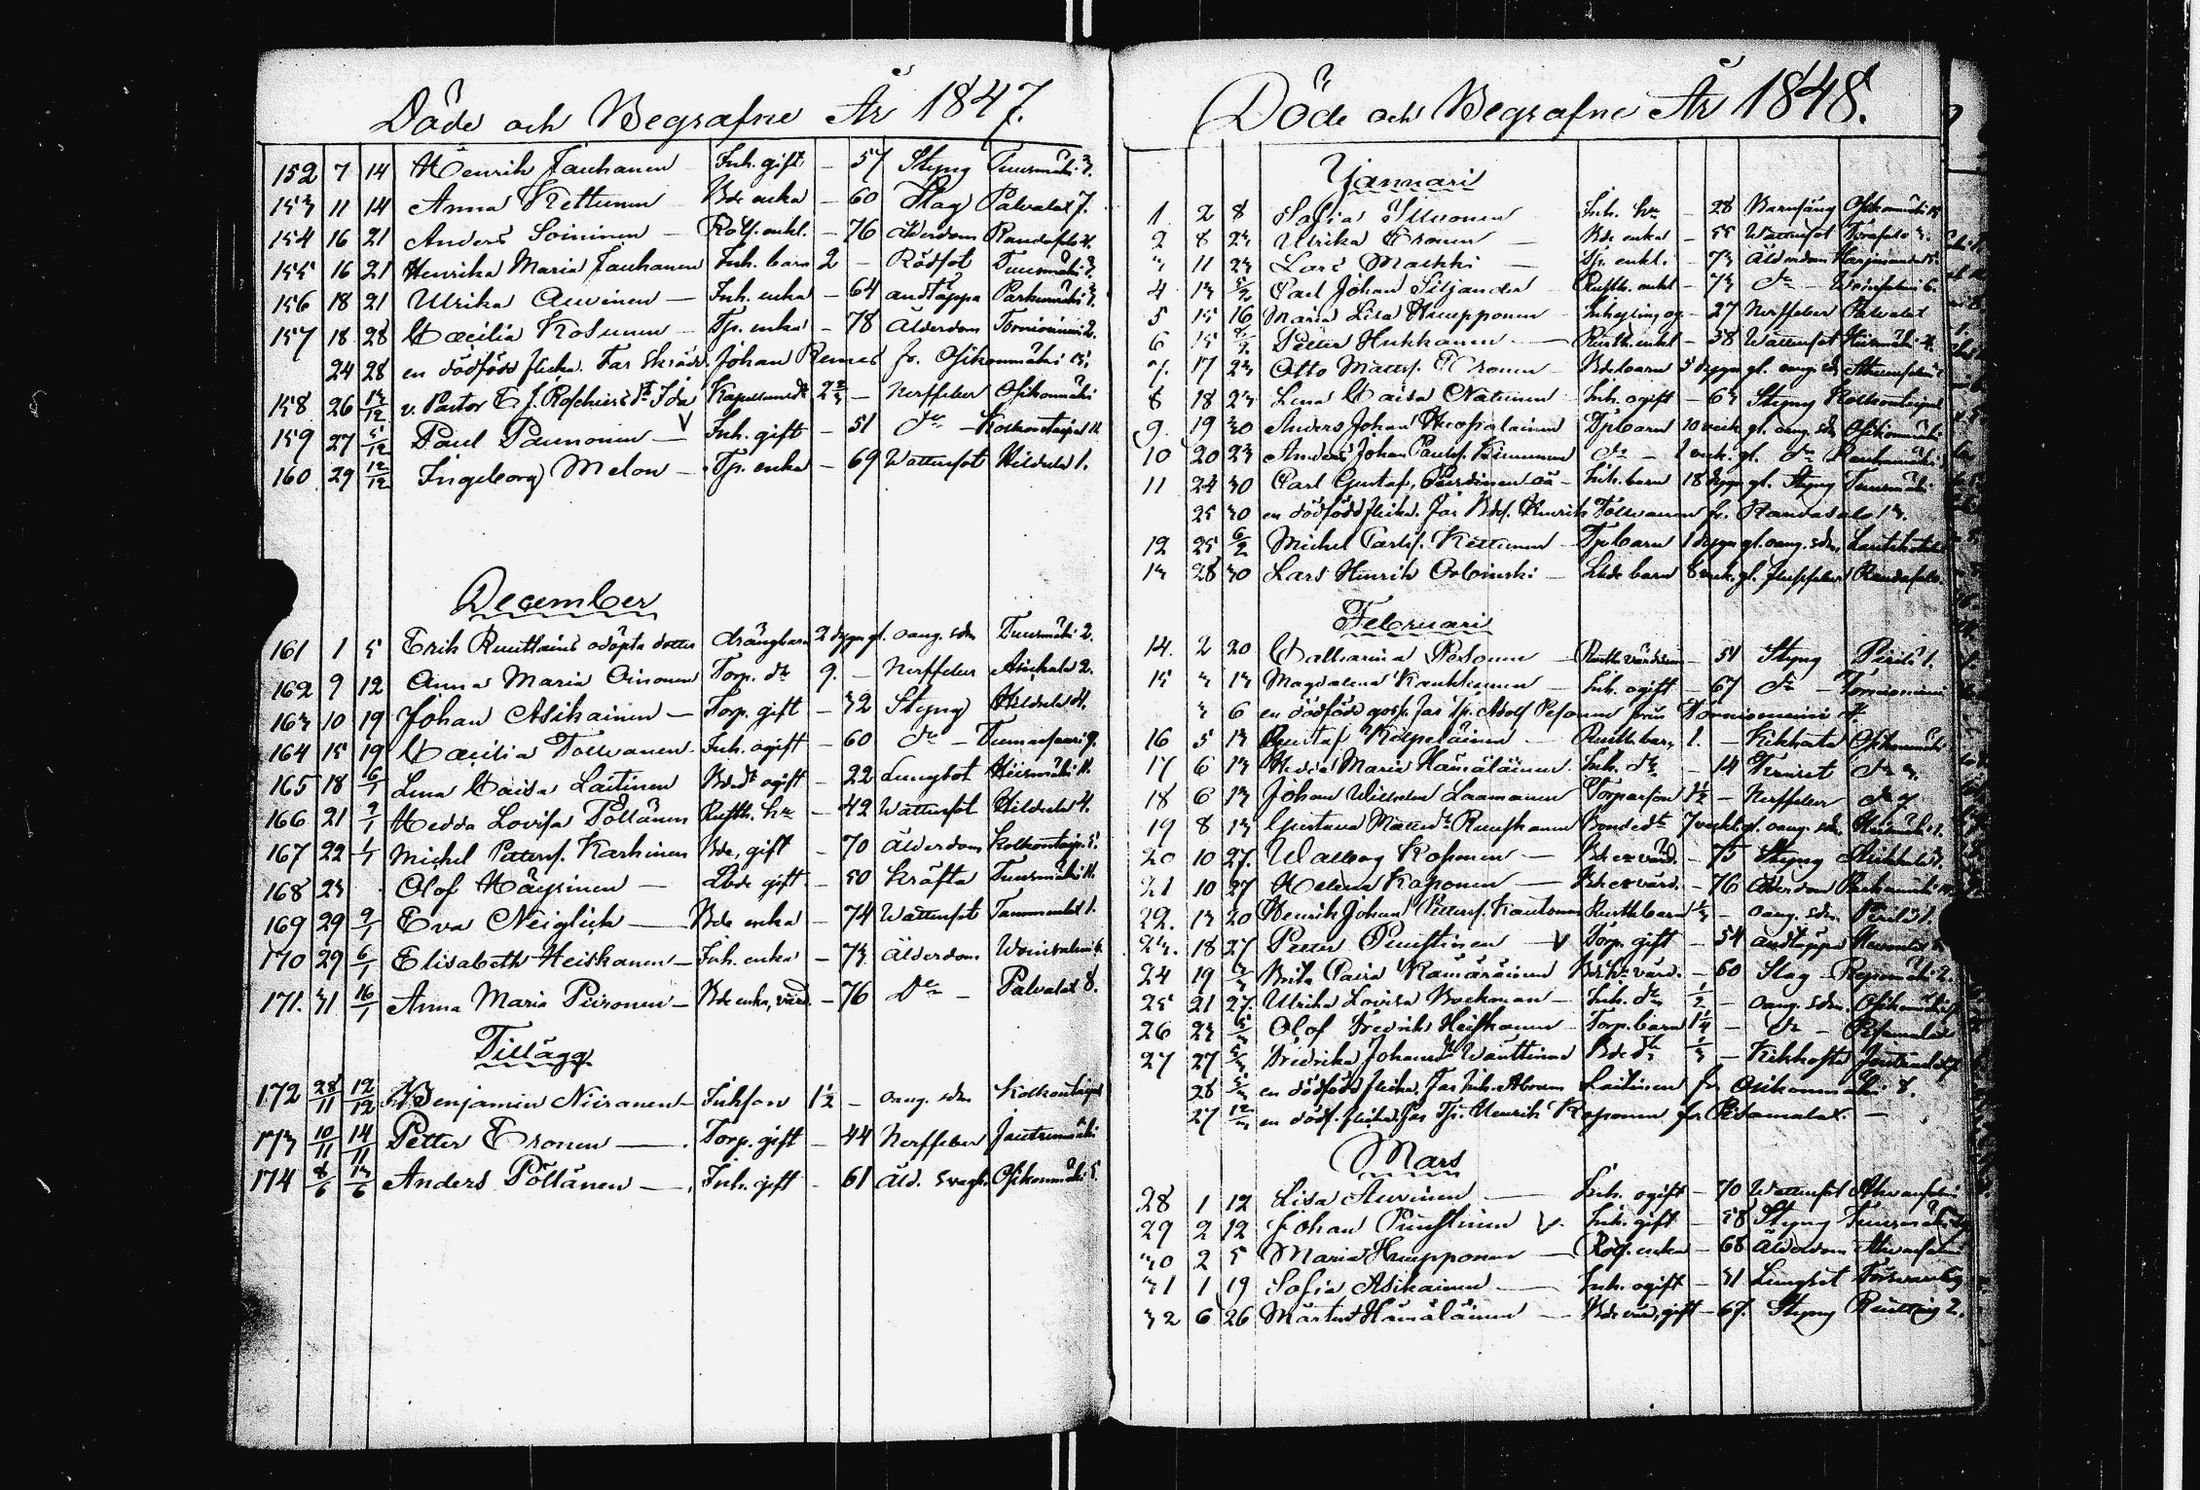 Döde och Begrafne År 1847.
152 7 14 Henrik Jauhanen Inh. gift - 57 Styng Tuusmäki 3.
153 11 14 Anna Kettunen Bde enka - 60 Slag Palvalax 7.
154 16 21 Anders Soininen Rotf. enkl. - 76 Ålderdom Randasalo 4.
155 16 21 Henrika Maria Jauhanen Inh. barn 2 - Rödsot Tuusmäki 3.
156 18 21 Ulrika Auvinen Inh. enka - 64 andtäppa Parkumäki 3.
157 18 28 Cæcilia Kosunen Tp. enka - 78 Ålderdom Torniomini 2.
24 28 en dödfödd flicka. Far Skrädd. Johan Remes fr. Osikonmäki 15.
158. 26 13/12 v. Pastor E. J. Roschiers dr Ida Kapellansdr 2 2/3 - Nerffeber Osikonmäki
159 27 5/12 Paul Paunonen V Inh. gift - 51 do - Kolkontaipal 11.
160 29 12/12 Ingeborg Melon Tp. enka - 69 Wattensot Hildula 1.
December
161 1 5 Erik Ruuttains odöpta dotter drängbarn 2 dygn gl. oang. sdm Tuusmäki 2.
162 9 12 Anna Maria Oinonen Torp. dr 9. - Nerffeber Ahikala 2.
163 10 19 Johan Asikainen Torp. gift - 32 Styng Hildula 4.
164 15 19 Cæcilia Tolvanen Inh. ogift - 60 do - Tuunansaari 9.
165 18 6/1 Lena Caisa Laitinen Bdedr ogift - 22 Lungsot Hiismäki 11.
166 21 2/1 Hedda Lovisa Pöllänen Rusth. hu - 42 Wattensot Hildula 4.
167 22 1/1 Michel Pettersf. Karhinen Bde, gift - 70 Ålderdom Kolkontaip. 5.
168 23 Olof Häyrinen Lbde gift - 50 Kräfta Tuusmäki 11.
169 29 9/1 Eva Neiglick Bde enka - 74 Wattensot Tammenlax 1.
170 29 6/1 Elisabeth Heiskanen Inh. enka - 73 Ålderdom Woinsalmi 6.
171. 31 16/1 Anna Maria Piironen Bde enka, värd. - 76 do - Palvalax 8.
Tillägg
172 28/11 12/12 Benjamin Niiranen Inhson 1 1/2 - oang. sdm Kolkontaipal
173 10/11 14/11 Petter Eronen Torp. gift - 44 Nerffeber Joutsenmäki
174 8/6 13/6 Anders Pöllänen Inh. gift - 61 Åld. svagh. Osikonmäki 5.
Döde och Begrafne År 1848.
Januari
1. 2 8 Sofia Ikonen Inh. hu - 28 Barnsäng Osikonmäki 15
2 8 23 Ulrika Eronen Bde enka - 55 Wattensot
3 11 23 Lars Malkki Tp. enkl. - 73 Ålderdom Harjuranda 15.
4 13 5/2 Carl Johan Siljander Rusth. enkl - 73 do - Woinsalmi 6.
5 15 16 Maria Lisa Huupponen Inhysing og. - 27 Nerffeber Palvalax
6 15 Petter Hukkanen Rusth. enkl - 58 Wattensot Hiismäki 4.
7. 17 23 Otto Mattsf. Eronen Bdebarn 5 dygn gl. oang. sdm Ahvensalmi
8 18 23 Lena Caisa Natunen Inh. ogift - 63 Styng Kolkontaipal
9. 19 30 Anders Johan Huopalainen Tpbarn 10 veck. gl. oang. sdm Osikonmäki
10 20 23 Anders Johan Paulsf. Kinnunen do - 1 veck. gl. do
11 24 30 Carl Gustaf, Puurtinen oä - Inh. barn 18 dygn gl. Styng Tuusmäki
25 30 en dödfödd flicka. far Bdef. Henrik Tolvanen fr. Randasalo 13.
12 25 6/2 Michel Carlsf. Kettunen Tpbarn 1 dygn gl. oang. sdm
13 28 30 Lars Henrik Orbinski Lbde barn 8 veck. gl. Randasalo
Februari
14. 2 20 Catharina Kosonen Rusth. värdinna - 51 Styng Pirilä 1.
15 3 13 Magdalena Kaukkunen Inh. ogift - 67 do - Torniomini
3 6 en dödfödd goss. far Tp. Adolf Pesonen från Torniomini 4.
16 5 13 Gustaf Kilpeläinen Rusth. barn 1. - Kikhosta Osikonmäki
17 6 13 Hedda Maria Hämäläinen Inh. dr - 14 do 3.
18 6 13 Johan Wilhelm Laamanen Torparson 1 1/2 - Nerffeber do 7
19 8 13 Gustava Mattsdr Ruuskanen Bondedr 7 veck gl. oang. sdm Hiismäki
20 10 27. Walborg Kosonen Bde ex värd. - 75 Styng
21 10 27 Helena Kaponen Bde ex värd. - 76 Ålderdom Parkumäki
22. 13 20 Henrik Johan Pettersf. Kautonen Rusthbarn 1/3 - oang. sdm. Pirilä 1.
23. 18 27 Petter Puustinen V Torp. gift - 54 andtäppa
24 19 Brita Caisa Hämäläinen Bde hu värd. - 60 Slag Repomäki 2.
25 21 27. Ulrika Lovisa Backman Inh. dr 1/2 - oang. sdm. Osikonmäki
26 23 5/3 Olof Fredrik Heiskanen Torp. barn 1 1/4 - do - Pesamalax
27 27 5/3 Fredrika Johansdr Wänttinen Bdedr 1/3 - Kikhosta
28 5/3 en dödfödd flicka, far Inh. Abram Laitinen fr Osikonmäki 8.
27 12/3 en dödf. flicka far Tp. Henrik Kaponen fr Pesamalax.
Mars
28 1 12 Lisa Auvinen Inh. ogift - 70 Wattensot Ahvensalmi
29 2 12 Johan Puustinen V. Inh. gift - 58 Styng Tuusmäki
30 2 5 Maria Huupponen Rotf. enka - 68 Ålderdom Ahvensalmi
31 1 19 Sofia Asikainen Inh. ogift - 31 Lungsot
32 6 26 Mårten Hämäläinen Bde värd, gift - 67. Styng 2.